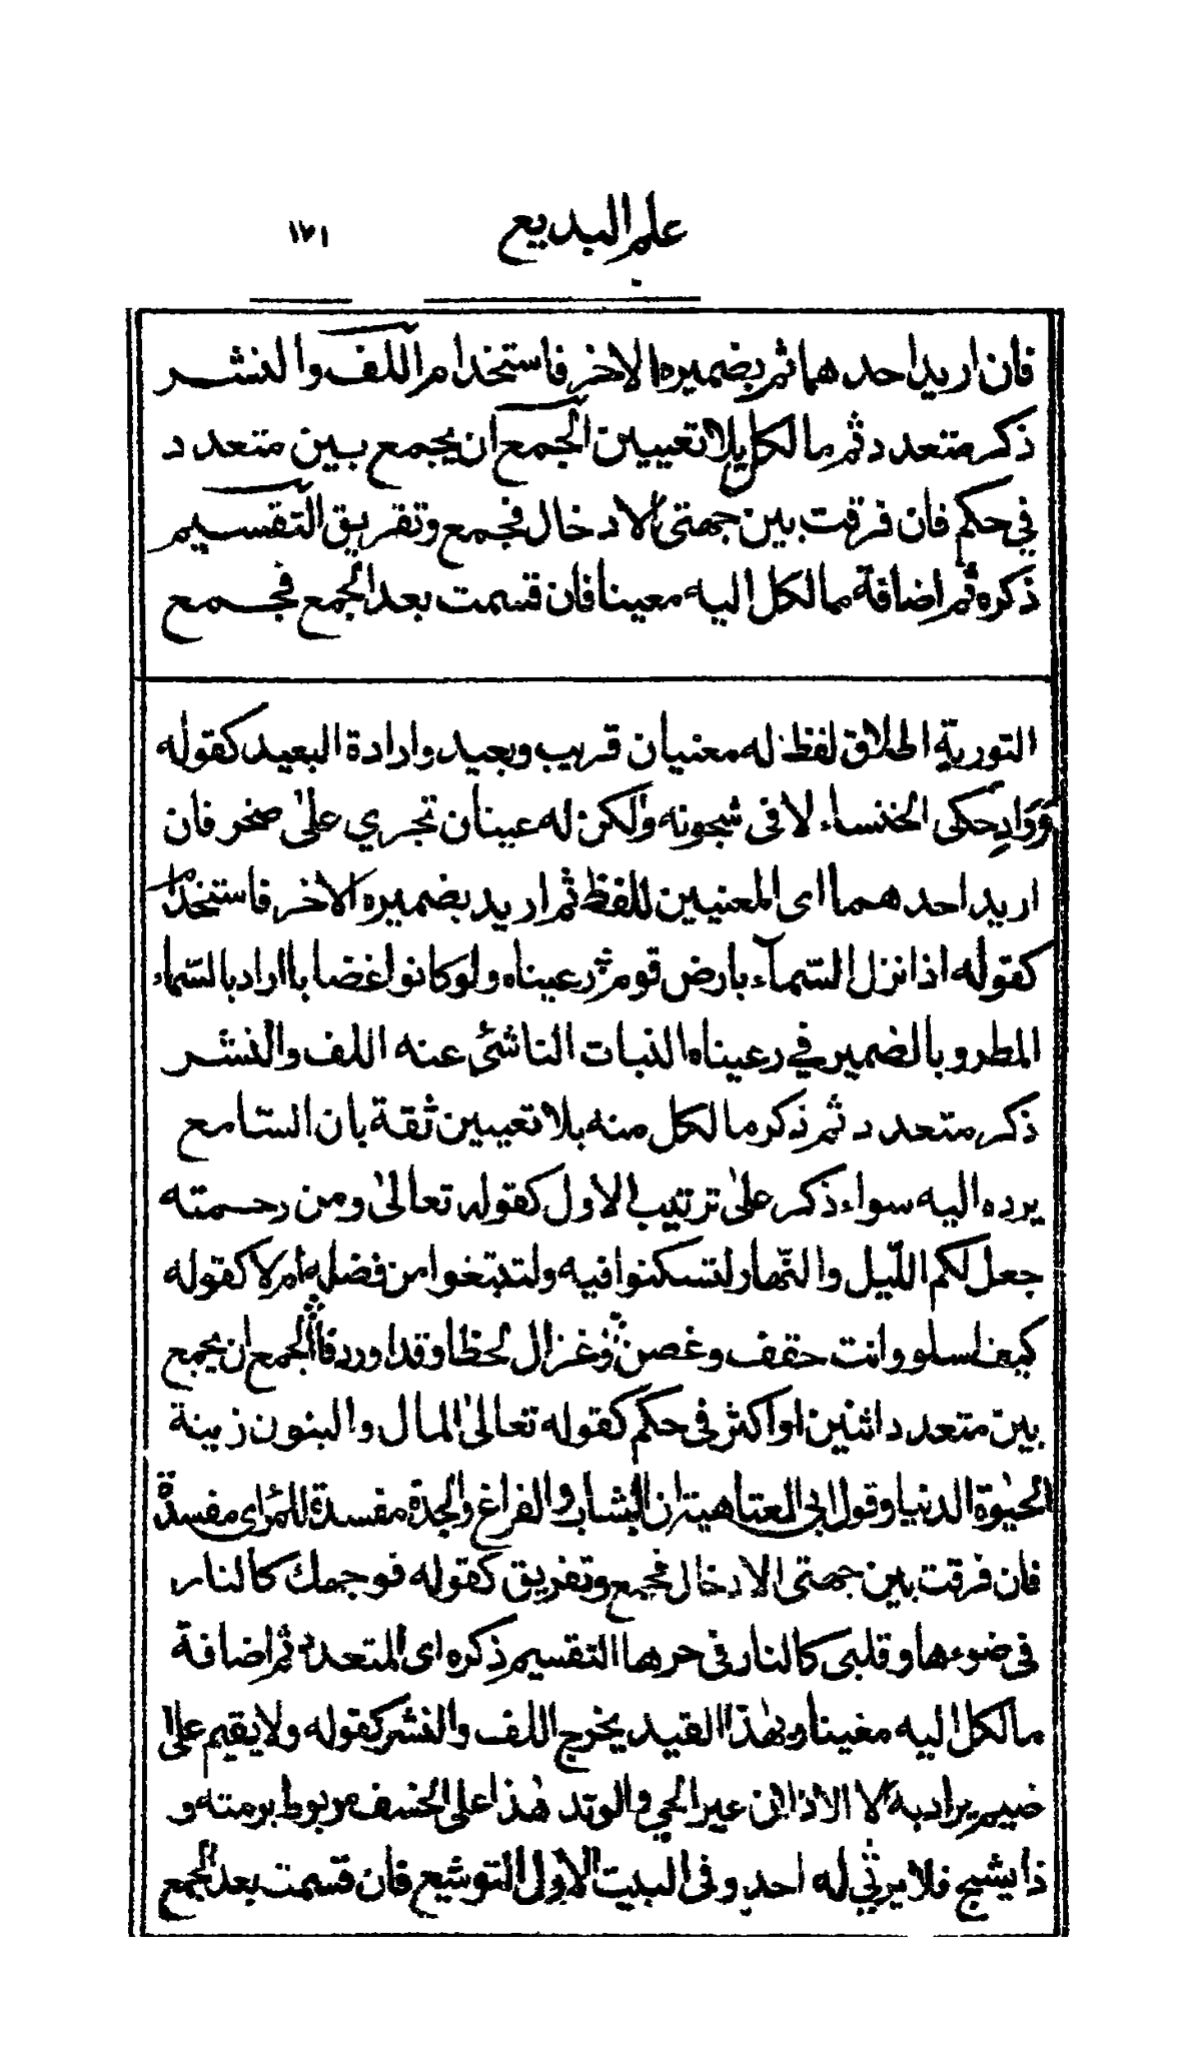 علم البديع ١٧١
فان اريد احدهما ثم بضميره الاخر فاستخدام اللف والنشر
ذكر متعدد ثم ما لكل بلا تعيين الجمع ان يجمع بين متعدد
في حكم فان فرقت بين جهتى الادخال فجمع وتفريق التقسيم
ذكره ثم اضافة ما لكل اليه معينا فان قسمت بعد الجمع فجمع
التورية اطلاق لفظ له معنيان قريب وبعيد وارادة البعيد كقوله
وَوَادٍ حكى الخنساء لا فى شجونه ولكن له عينان تجري على صخر فان
اريد احدهما اى المعنيين للفظ ثم اريد بضميره الاخر فاستخدام
كقوله اذا نزل السّمآء بارض قوم رعيناه ولو كانوا غضابا اراد بالسّماء
المطر وبالضمير في رعيناه النبات الناشئ عنه اللف والنشر
ذكر متعدد ثم ذكر ما لكل منه بلا تعيين ثقة بان السّامع
يرده اليه سواء ذكر على ترتيب الاول كقوله تعالىٰ ومن رحمته
جعل لكم اللّيل والنّهار لتسكنوا فيه ولتبتغوا من فضله ام لا كقوله
كيف اسلو وانت حقف وغصن وغزال لحظا وقدا وردفا الجمع ان يجمع
بين متعدد اثنين او اكثر فى حكم كقوله تعالىٰ المال والبنون زينة
الحيٰوة الدنيا وقول ابى العتاهية ان الشباب والفراغ والجدة مفسدة للمرء اى مفسدة
فان فرقت بين جهتى الادخال فجمع وتفريق كقوله فوجهك كالنار
فى ضوءها وقلبى كالنار فى حرها التقسيم ذكره اى المتعدد ثم اضافة
ما لكل اليه معينا وبهٰذا القيد يخرج اللف والنشر كقوله ولا يقيم على
ضيم يراد به الا الاذلان عير الحي والوتد هٰذا على الخسف مربوط برمته و
ذا يشج فلا يرثي له احد وفى البيت الاول التوشيع فان قسمت بعد الجمع